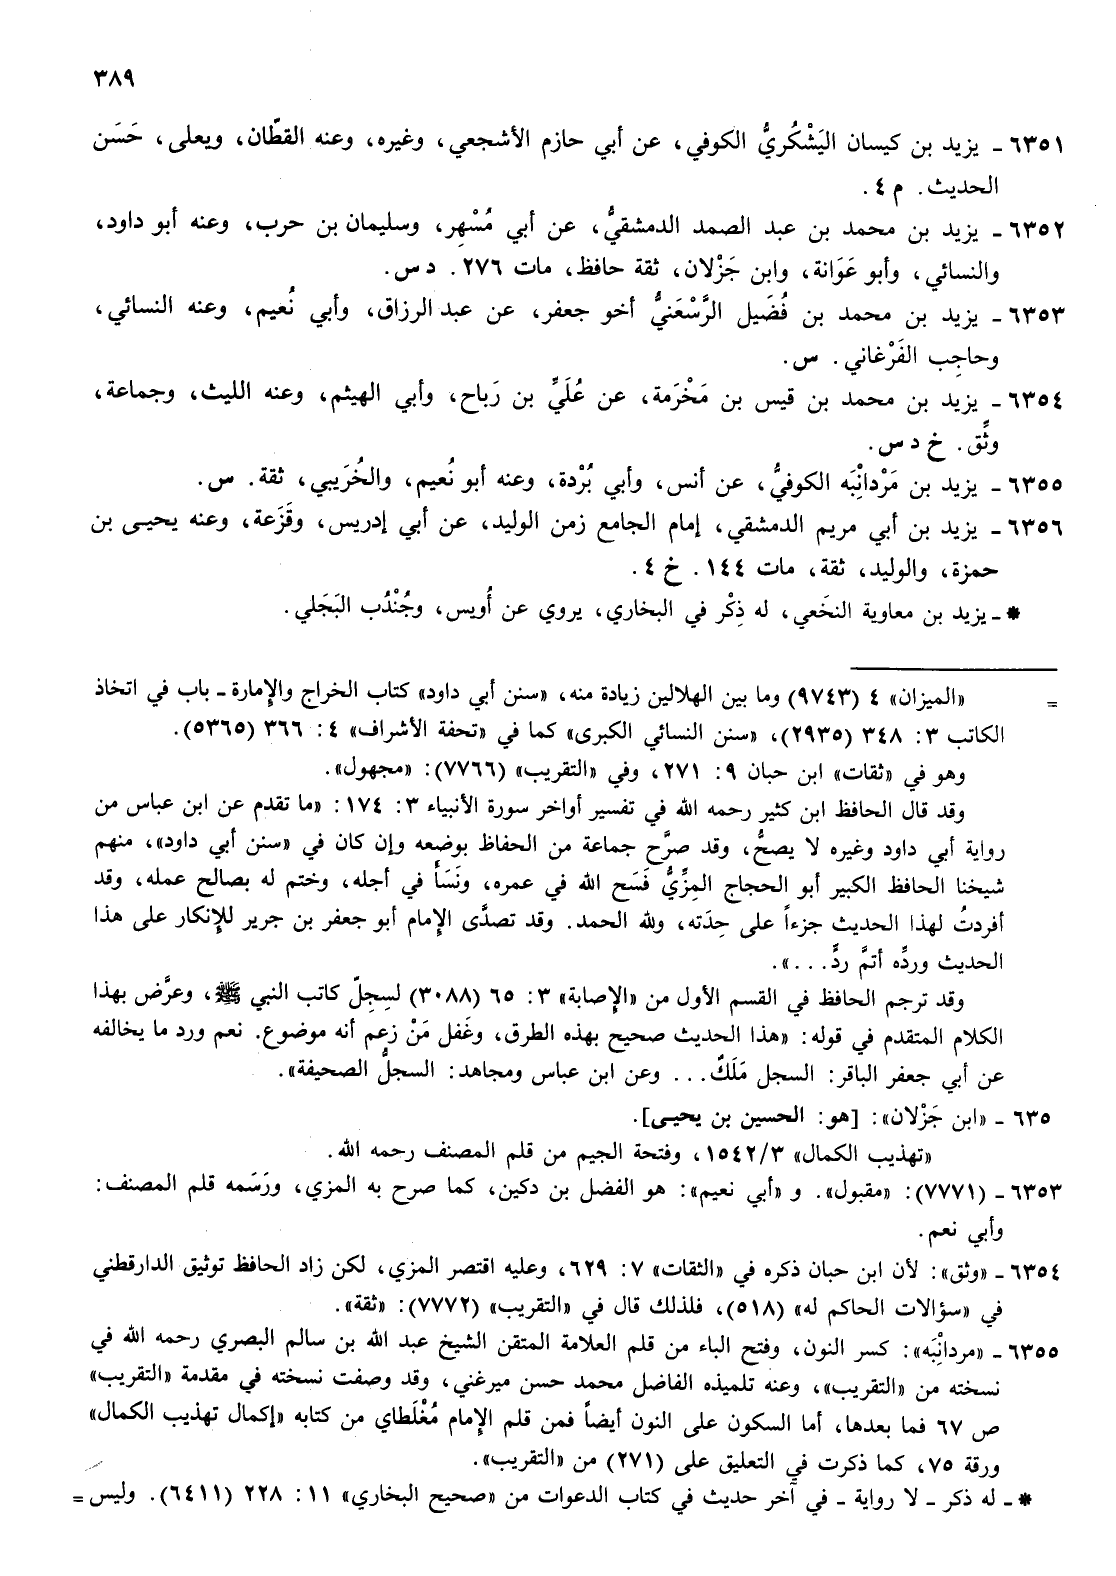 ٣٨٩
٦٣٥١ ـ يزيد بن كيسان اليَشْكُريُّ الكوفي، عن أبي حازم الأشجعي، وغيره، وعنه القطّان، ويعلى، حَسَن
الحديث. م ٤.
٦٣٥٢ ـ يزيد بن محمد بن عبد الصمد الدمشقيُّ، عن أبي مُسْهِر، وسليمان بن حرب، وعنه أبو داود،
والنسائي، وأبو عَوَانة، وابن جَزْلان، ثقة حافظ، مات ٢٧٦. د س.
٦٣٥٣ ـ يزيد بن محمد بن فُضَيل الرَّسْعَنيُّ أخو جعفر، عن عبد الرزاق، وأبي نُعيم، وعنه النسائي،
وحاجِب الفَرْغاني. س.
٦٣٥٤ ـ يزيد بن محمد بن قيس بن مَخْرَمة، عن عُلَيِّ بن رَباح، وأبي الهيثم، وعنه الليث، وجماعة،
وثِّق. خ د س.
٦٣٥٥ ـ يزيد بن مَرْدانْبَه الكوفيُّ، عن أنس، وأبي بُرْدة، وعنه أبو نُعيم، والخُرَيبي، ثقة. س.
٦٣٥٦ ـ يزيد بن أبي مريم الدمشقي، إمام الجامع زمن الوليد، عن أبي إدريس، وقَزَعة، وعنه يحيـى بن
حمزة، والوليد، ثقة، مات ١٤٤. خ ٤.
* ـ يزيد بن معاوية النخَعي، له ذِكْر في البخاري، يروي عن أُويس، وجُنْدُب البَجَلي.
= «الميزان» ٤ (٩٧٤٣) وما بين الهلالين زيادة منه، «سنن أبي داود» كتاب الخراج والإمارة ـ باب في اتخاذ
الكاتب ٣: ٣٤٨ (٢٩٣٥)، «سنن النسائي الكبرى» كما في «تحفة الأشراف» ٤: ٣٦٦ (٥٣٦٥).
وهو في «ثقات» ابن حبان ٩: ٢٧١، وفي «التقريب» (٧٧٦٦): «مجهول».
وقد قال الحافظ ابن كثير رحمه الله في تفسير أواخر سورة الأنبياء ٣: ١٧٤: «ما تقدم عن ابن عباس من
رواية أبي داود وغيره لا يصحُّ، وقد صرَّح جماعة من الحفاظ بوضعه وإن كان في «سنن أبي داود»، منهم
شيخنا الحافظ الكبير أبو الحجاج المِزِّيُّ فَسَح الله في عمره، ونَسَأَ في أجله، وختم له بصالح عمله، وقد
أفردتُ لهذا الحديث جزءاً على حِدَته، ولله الحمد. وقد تصدَّى الإمام أبو جعفر بن جرير للإنكار على هذا
الحديث وردَّه أتمَّ ردٍّ...».
وقد ترجم الحافظ في القسم الأول من «الإصابة» ٣: ٦٥ (٣٠٨٨) لسِجِلّ كاتب النبي ﷺ، وعرَّض بهذا
الكلام المتقدم في قوله: «هذا الحديث صحيح بهذه الطرق، وغَفل مَنْ زعم أنه موضوع. نعم ورد ما يخالفه
عن أبي جعفر الباقر: السجل مَلَكٌ... وعن ابن عباس ومجاهد: السجلُّ الصحيفة».
٦٣٥ ـ «ابن جَزْلان»: [هو: الحسين بن يحيـى].
«تهذيب الكمال» ١٥٤٢/٣، وفتحة الجيم من قلم المصنف رحمه الله.
٦٣٥٣ ـ (٧٧٧١): «مقبول». و «أبي نعيم»: هو الفضل بن دكين، كما صرح به المزي، ورَسَمه قلم المصنف:
وأبي نعم.
٦٣٥٤ ـ «وثق»: لأن ابن حبان ذكره في «الثقات» ٧: ٦٢٩، وعليه اقتصر المزي، لكن زاد الحافظ توثيق الدارقطني
في «سؤالات الحاكم له» (٥١٨)، فلذلك قال في «التقريب» (٧٧٧٢): «ثقة».
٦٣٥٥ ـ «مردانْبَه»: كسر النون، وفتح الباء من قلم العلامة المتقن الشيخ عبد الله بن سالم البصري رحمه الله في
نسخته من «التقريب»، وعنه تلميذه الفاضل محمد حسن ميرغني، وقد وصفت نسخته في مقدمة «التقريب»
ص ٦٧ فما بعدها، أما السكون على النون أيضاً فمن قلم الإمام مُغْلَطاي من كتابه «إكمال تهذيب الكمال»
ورقة ٧٥، كما ذكرت في التعليق على (٢٧١) من «التقريب».
* ـ له ذكر ـ لا رواية ـ في آخر حديث في كتاب الدعوات من «صحيح البخاري» ١١: ٢٢٨ (٦٤١١). وليس =